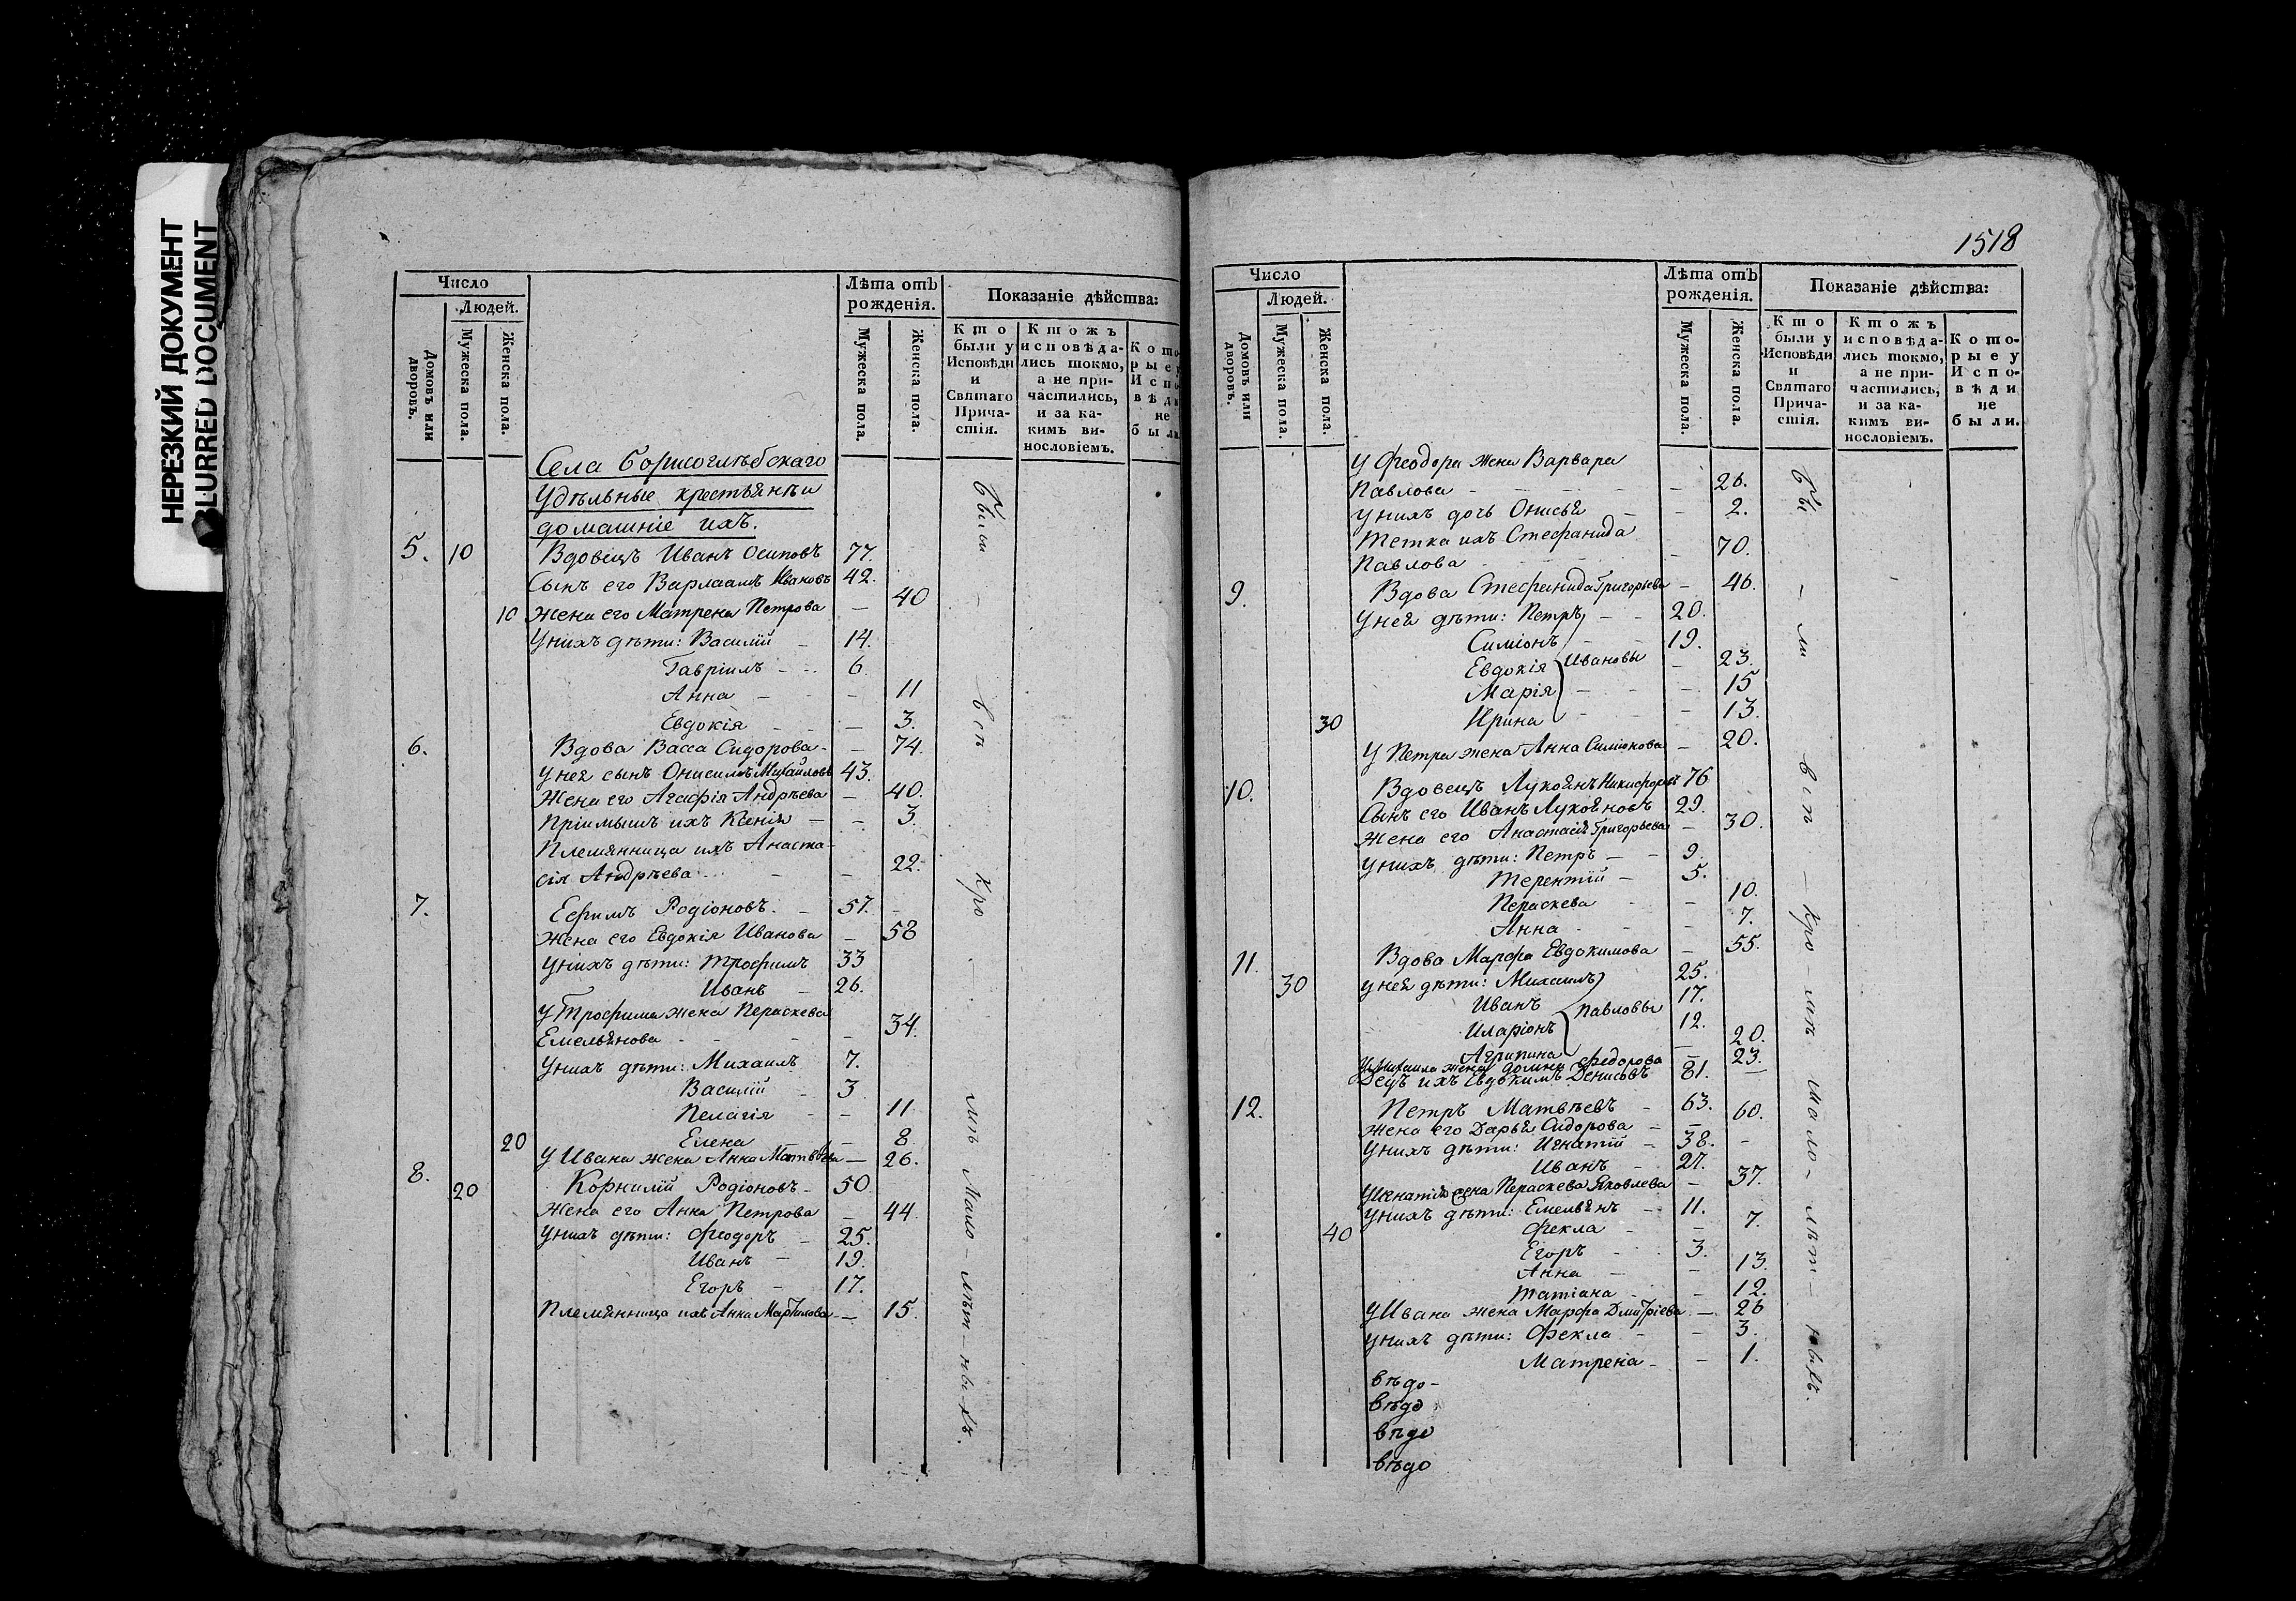 НЕРЕЗКИЙ ДОКУМЕНТ
BLURRED DOCUMENT
Число
Людей.
Домовъ или дворовъ.
Мужеска пола.
Женска пола.
Лѣта отъ рожденія.
Мужеска пола.
Женска пола.
Показаніе дѣйства:
Кто были у Исповѣди и Святаго Причастія.
Ктожъ исповѣдались токмо, а не причастились, и за какимъ винословіемъ.
Которые у Испо вѣди не были
Села Борисоглѣбскаго
Удѣльные крестьянѣ и
домашніе ихъ.
5. 10 Вдовецъ Иванъ Осиповъ 77.
Сынъ его Варлаамъ Ивановъ 42.
10 Жена его Матрена Петрова — 40
У нихъ дѣти: Василій — 14.
Гавріилъ - - 6
Анна — — 11
Евдокія — 3.
6. Вдова Васса Сидорова - — 74.
У нея сынъ Онисимъ Михайловъ 43.
Жена его Агафія Андрѣева — 40.
Пріимышъ ихъ Ксенія — - 3.
Племянница ихъ Анаста-
сія Андрѣева — 22.
7. Ефимъ Родіоновъ. - 57. -
Жена его Евдокія Иванова — 58
У нихъ дѣти: Трофимъ 33
Иванъ - 26.
У Трофима жена Пераскева
Емельянова - - — 34.
У нихъ дѣти: Михаилъ 7.
Василій - 3
Пелагія - — 11
20 Елена — 8
У Ивана жена Анна Матвѣева — 26.
8. 20 Корнилій Родіоновъ - 50
Жена его Анна Петрова — 44
У нихъ дѣти: Феодоръ - 25.
Иванъ — 19.
Егоръ - 17.
Племянница ихъ Анна Мартилова - — 15.
Были - всѣ кро - мѣ Мало - лѣт - ны - хъ.
1518
Число
Людей.
Домовъ или дворовъ.
Мужеска пола.
Женска пола.
Лѣта отъ рожденія.
Мужеска пола.
Женска пола.
Показаніе дѣйства:
Кто были у Исповѣди и Святаго Причастія.
Ктожъ исповѣдались токмо, а не причастились, и за какимъ винословіемъ.
Которые у Исповѣди не были.
У Феодора жена Варвара
Павлова — — 26.
У нихъ дочь Онисья - — 2.
Тетка ихъ Стефанида
Павлова - — 70.
9. Вдова Стефанида Григорьева — 46.
У нея дѣти: Петръ — - 20.
Симіонъ — 19.
Евдокія Ивановы — 23.
Марія — — 15
30 Ирина - — 13.
У Петра жена Анна Симіонова — 20.
10. Вдовецъ Лукоянъ Никифоровъ 76
Сынъ его Иванъ Лукояновъ 29.
Жена его Анастасія Григорьева — 30.
У нихъ дѣти: Петръ — - 9.
Терентій — 5.
Пераскева - — 10.
Анна - — 7.
11. Вдова Марфа Евдокимова — 55.
30 У нея дѣти: Михаилъ 25.
Иванъ Павловы 17.
Иларіонъ 12.
Агрипина — 20.
У Михаила жена Домна Федорова — 23.
Дедъ ихъ Евдокимъ Денисовъ 81. —
12. Петръ Матвѣевъ - 63.
Жена его Дарья Сидорова — — 60.
У нихъ дѣти: Игнатій — 38. -
Иванъ - 27.
У Игнатія жена Пераскева Яковлева — 37.
У нихъ дѣти: Емельянъ - 11.
40 Фекла - — 7.
Егоръ - 3.
Анна — — 13.
Татіана - — 12.
У Ивана жена Марфа Дмитріева — 26
У нихъ дѣти: Фекла - — 3.
Матрена - — 1.
вѣдо-
вѣдо
вѣдо
вѣдо
Бы - ли всѣ - кро - мѣ мало - лѣт - ныхъ.